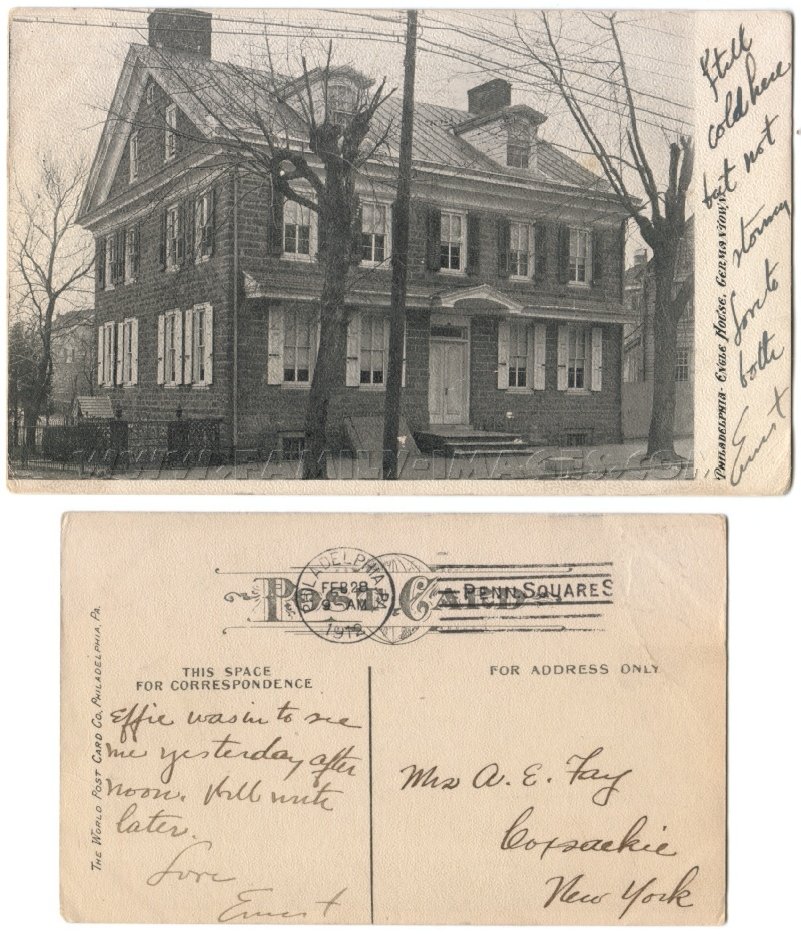 Still
cold here
but not
stormy
Love to
both
Ernest
PHILADELPHIA- ENGLE HOUSE, GERMANTOWN.
PHILADELPHIA, PA.
FEB 28
9 AM
1912
POST CARD
PENN. SQUARE S
THIS SPACE
FOR CORRESPONDENCE
FOR ADDRESS ONLY
THE WORLD POST CARD CO. PHILADELPHIA, PA.
Effie was in to see
me yesterday after
noon. Will write
later.
Love
Ernest
Mrs A. E. Fay
Coxsackie
New York